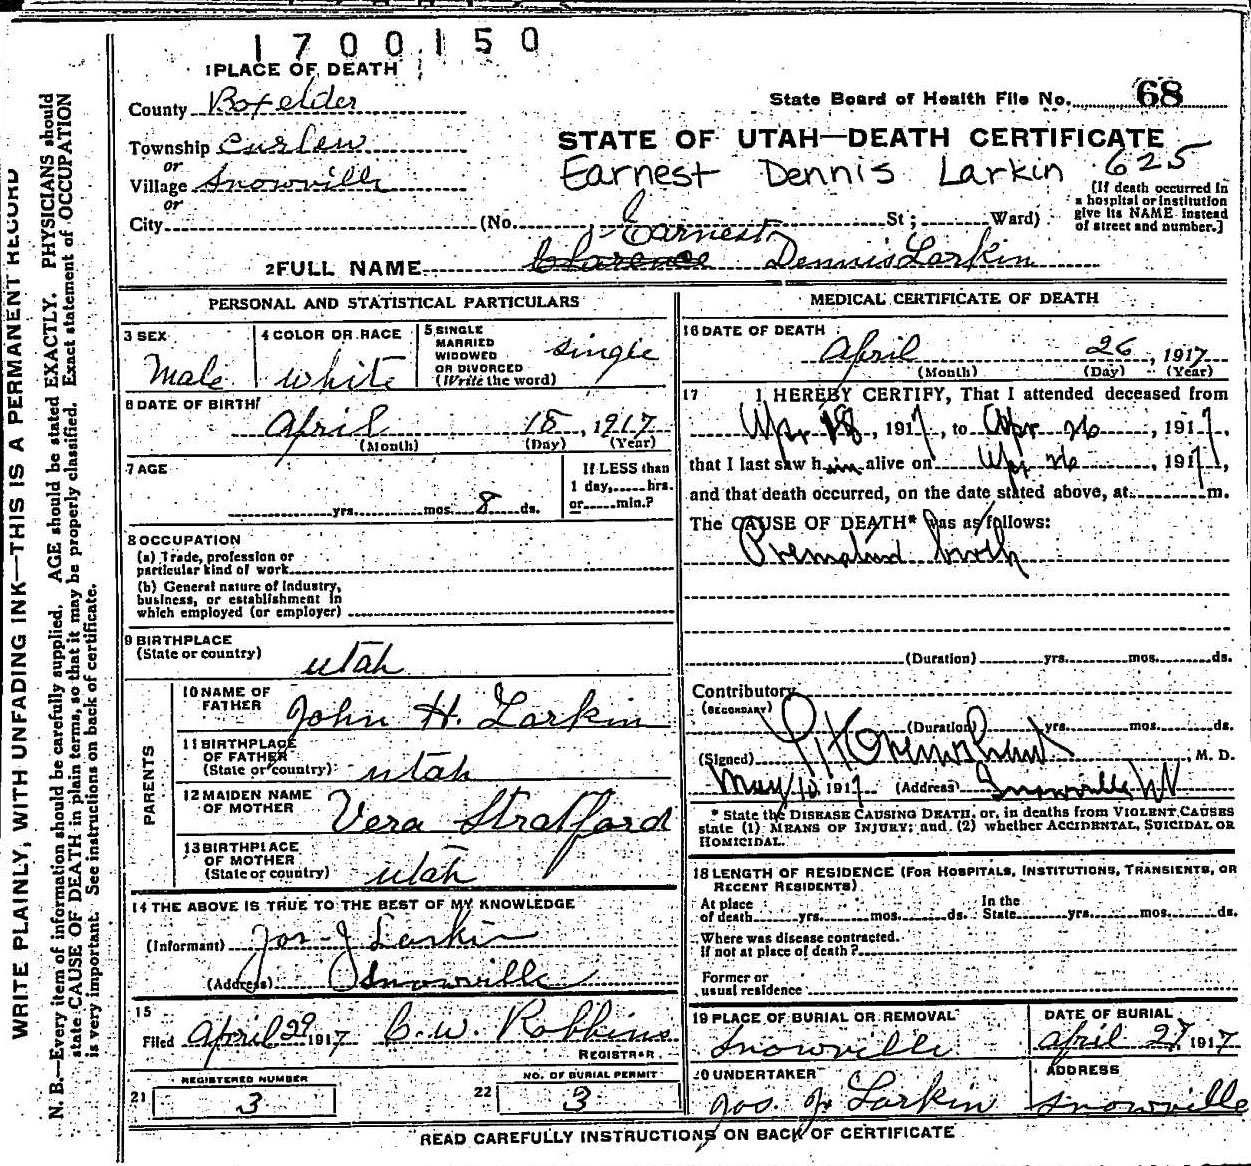 1700150
1 PLACE OF DEATH
County Boxelder
State Board of Health File No. 68
Township Curlew
STATE OF UTAH—DEATH CERTIFICATE
or
Village Snowville
Earnest Dennis Larkin 625
or
City (No. St; Ward)
[If death occurred in
a hospital or institution
give its NAME instead
of street and number.]
Earnest
2 FULL NAME Clarence Dennis Larkin
PERSONAL AND STATISTICAL PARTICULARS
3 SEX
Male
4 COLOR OR RACE
white
5 SINGLE
MARRIED
WIDOWED
OR DIVORCED
(Write the word)
single
6 DATE OF BIRTH
April 18, 1917
(Month) (Day) (Year)
7 AGE
yrs. mos. 8 ds.
If LESS than
1 day, hrs.
or min.?
8 OCCUPATION
(a) Trade, profession or
particular kind of work
(b) General nature of industry,
business, or establishment in
which employed (or employer)
9 BIRTHPLACE
(State or country)
utah
PARENTS
10 NAME OF
FATHER
John H. Larkin
11 BIRTHPLACE
OF FATHER
(State or country)
utah
12 MAIDEN NAME
OF MOTHER
Vera Stratford
13 BIRTHPLACE
OF MOTHER
(State or country)
utah
14 THE ABOVE IS TRUE TO THE BEST OF MY KNOWLEDGE
(Informant) Jos. J Larkin
(Address) Snowville
15
Filed April 29 1917 C. W. Robbins
REGISTRAR.
REGISTERED NUMBER
21 3
NO. OF BURIAL PERMIT
22 3
MEDICAL CERTIFICATE OF DEATH
16 DATE OF DEATH
April 26, 1917
(Month) (Day) (Year)
17 I HEREBY CERTIFY, That I attended deceased from
Apr 18, 1917, to Apr 26, 1917,
that I last saw him alive on Apr 26, 1917,
and that death occurred, on the date stated above, at m.
The CAUSE OF DEATH* was as follows:
birth
(Duration) yrs. mos. ds.
Contributory
(SECONDARY)
(Duration) yrs. mos. ds.
(Signed) , M. D.
May 10 1917 (Address) Snowville
* State the DISEASE CAUSING DEATH, or, in deaths from VIOLENT CAUSES
state (1) MEANS OF INJURY; and (2) whether ACCIDENTAL, SUICIDAL OR
HOMICIDAL.
18 LENGTH OF RESIDENCE (FOR HOSPITALS, INSTITUTIONS, TRANSIENTS, OR
RECENT RESIDENTS)
At place
of death yrs. mos. ds.
In the
State yrs. mos. ds.
Where was disease contracted.
if not at place of death?
Former or
usual residence
19 PLACE OF BURIAL OR REMOVAL
Snowville
DATE OF BURIAL
April 27, 1917
20 UNDERTAKER
Jos. J Larkin
ADDRESS
Snowville
READ CAREFULLY INSTRUCTIONS ON BACK OF CERTIFICATE
WRITE PLAINLY, WITH UNFADING INK—THIS IS A PERMANENT RECORD
N. B.—Every item of information should be carefully supplied. AGE should be stated EXACTLY. PHYSICIANS should
state CAUSE OF DEATH in plain terms, so that it may be properly classified. Exact statement of OCCUPATION
is very important. See instructions on back of certificate.